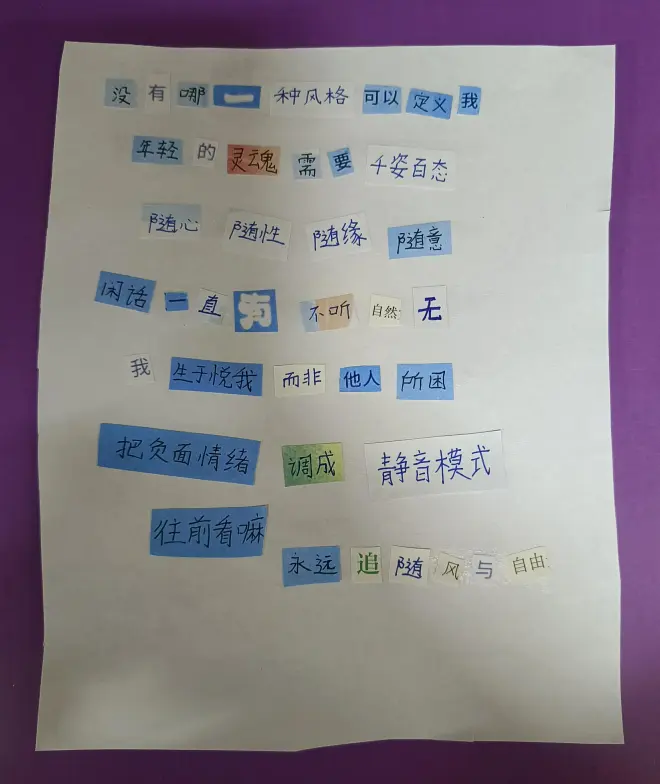 没有哪一种风格可以定义我
年轻的灵魂需要千姿百态
随心 随性 随缘 随意
闲话一直有 不听自然无
我生于悦我而非他人所困
把负面情绪调成静音模式
往前看嘛
永远追随风与自由